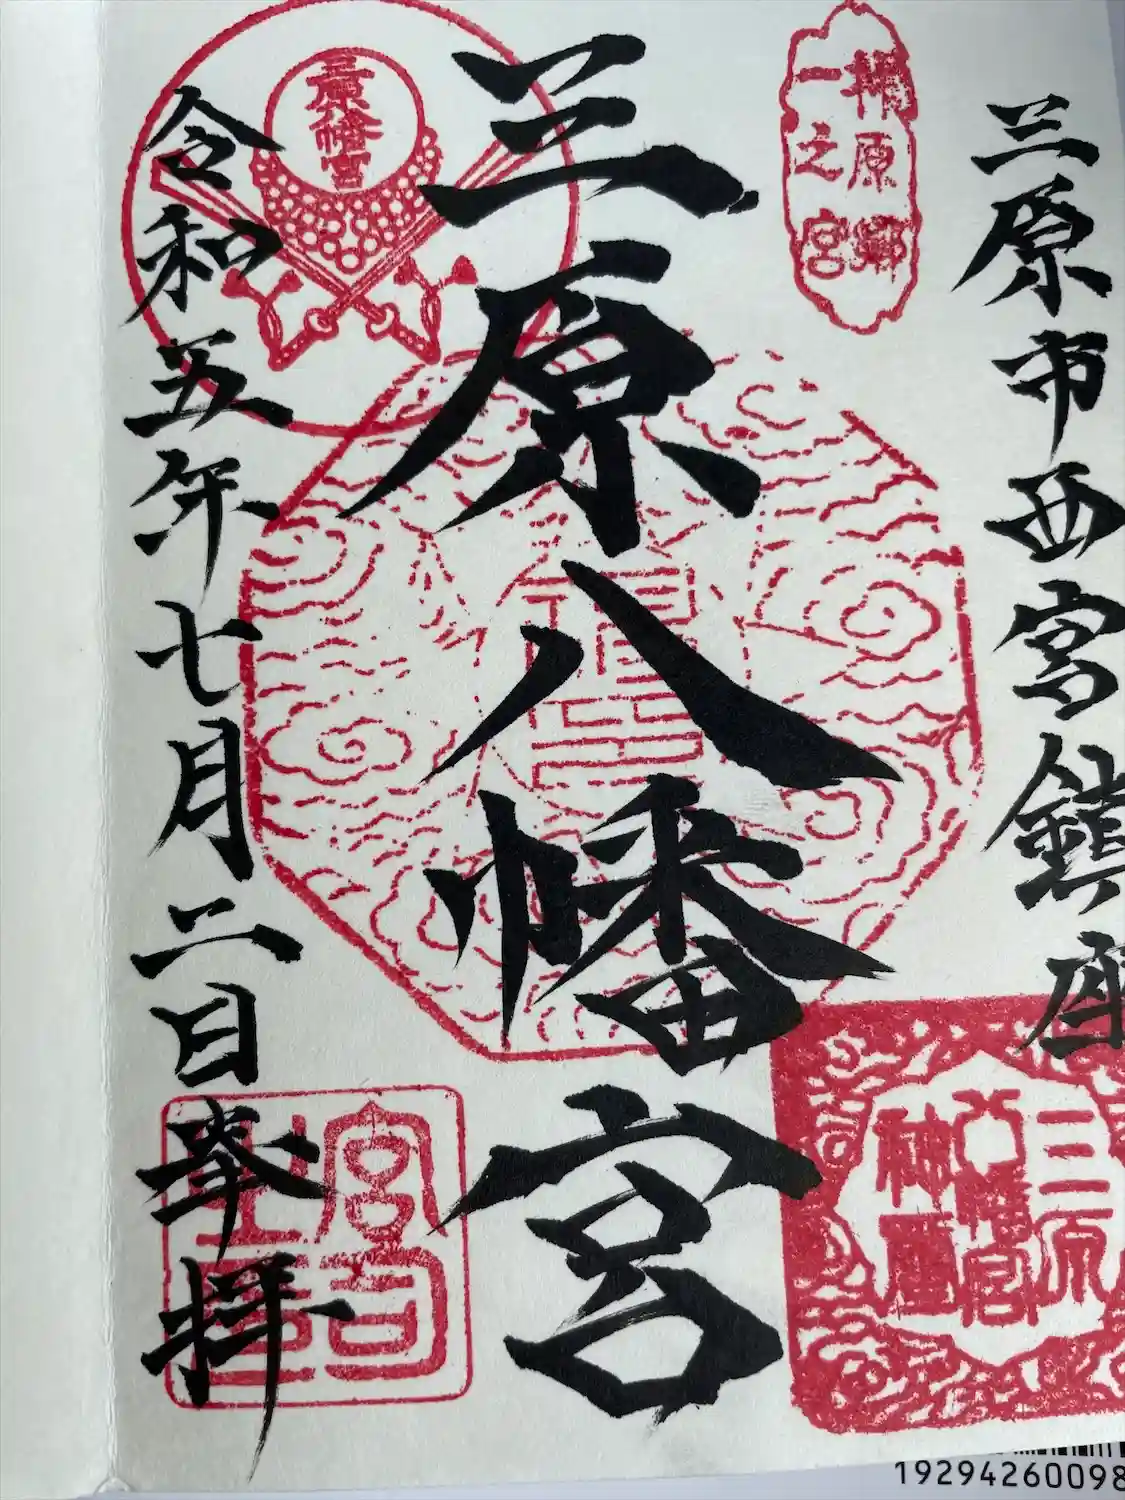 三原市西宮鎮座
柞原郷
一之宮
三原八幡宮
三原八幡宮
三原
八幡宮
神璽
令和五年七月二日奉拝
宮司
19294260098